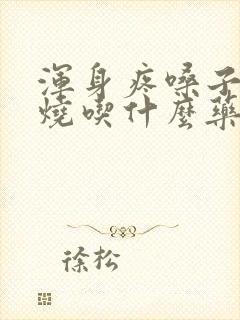 渾身疼嗓子
燒喫什麼藥
徐松